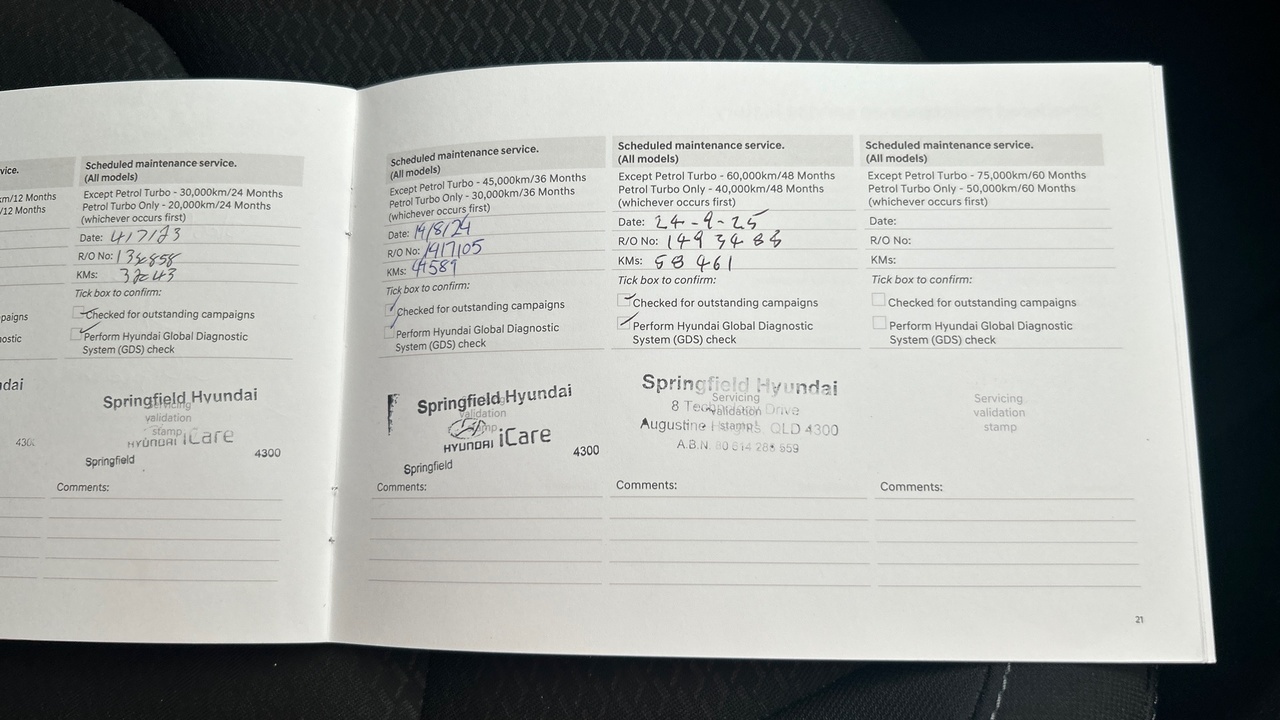 vice.
km/12 Months
/12 Months
paigns
nostic
dai
430
Scheduled maintenance service.
(All models)
Except Petrol Turbo - 30,000km/24 Months
Petrol Turbo Only - 20,000km/24 Months
(whichever occurs first)
Date: 4/7/23
R/O No:
KMs:
Tick box to confirm:
Checked for outstanding campaigns
Perform Hyundai Global Diagnostic
System (GDS) check
Springfield Hyundai
Servicing
validation
stamp
HYUNDAI iCare
Springfield 4300
Comments:
Scheduled maintenance service.
(All models)
Except Petrol Turbo - 45,000km/36 Months
Petrol Turbo Only - 30,000km/36 Months
(whichever occurs first)
Date: 19/8/24
R/O No: 1417105
KMs: 41589
Tick box to confirm:
Checked for outstanding campaigns
Perform Hyundai Global Diagnostic
System (GDS) check
Springfield Hyundai
validation
HYUNDAI iCare
Springfield 4300
Comments:
Scheduled maintenance service.
(All models)
Except Petrol Turbo - 60,000km/48 Months
Petrol Turbo Only - 40,000km/48 Months
(whichever occurs first)
Date: 24-9-25
R/O No: 1493483
KMs: 58 461
Tick box to confirm:
Checked for outstanding campaigns
Perform Hyundai Global Diagnostic
System (GDS) check
Springfield Hyundai
Servicing
8 Drive
validation
Augustine QLD 4300
stamp
A.B.N. 80 614 288 659
Comments:
Scheduled maintenance service.
(All models)
Except Petrol Turbo - 75,000km/60 Months
Petrol Turbo Only - 50,000km/60 Months
(whichever occurs first)
Date:
R/O No:
KMs:
Tick box to confirm:
Checked for outstanding campaigns
Perform Hyundai Global Diagnostic
System (GDS) check
Servicing
validation
stamp
Comments:
21